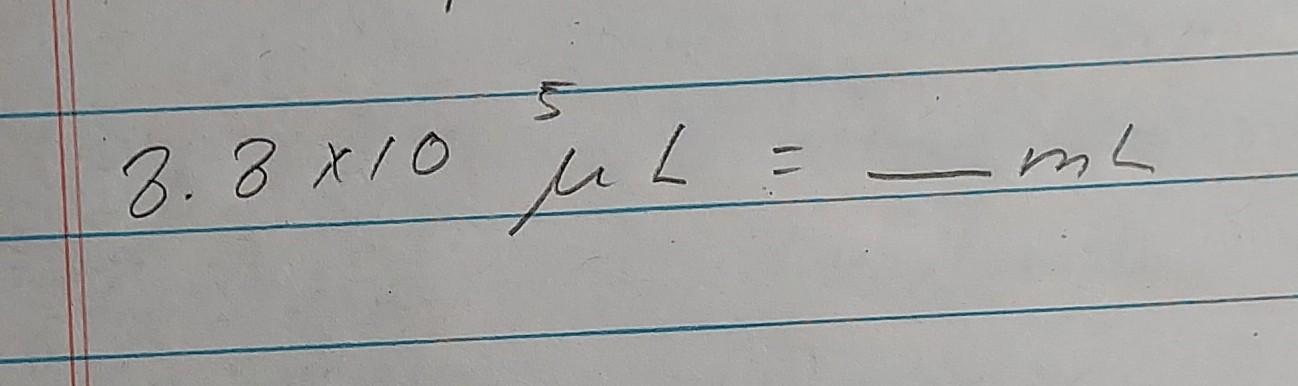 3.8 x 10⁵ μL = __ mL